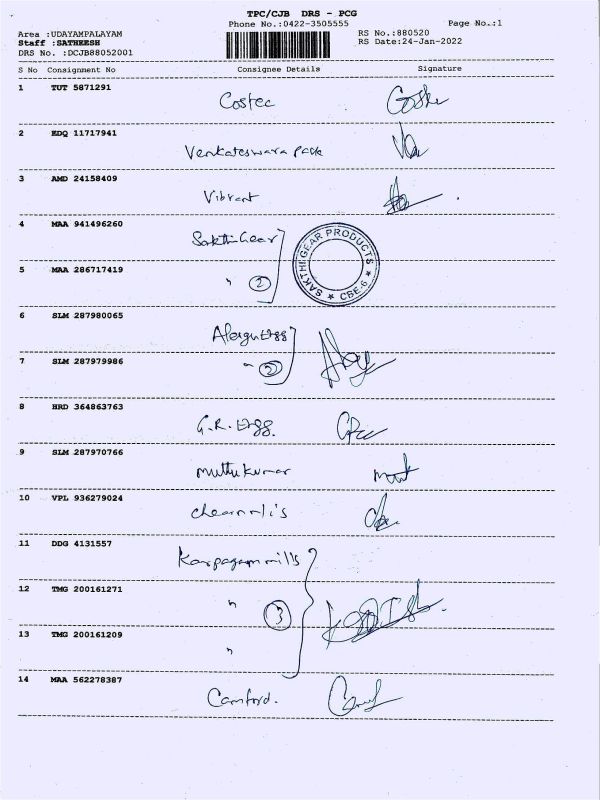 TPC/CJB DRS - PCG
Phone No.:0422-3505555
Page No.:1
Area :UDAYAMPALAYAM
RS No.:880520
Staff :SATHEESH
RS Date:24-Jan-2022
DRS No. :DCJB88052001
S No Consignment No Consignee Details Signature
1 TUT 5871291
Costec
2 EDQ 11717941
Venkateswara
3 AMD 24158409
Vibrant
4 MAA 941496260
Sakthi Gear
SAKTHI GEAR PRODUCTS ★ CBE-6 ★
5 MAA 286717419
" 2
6 SLM 287980065
7 SLM 287979986
" 2
8 HRD 364863763
G.R. Engg.
9 SLM 287970766
Muthukumar
10 VPL 936279024
11 DDG 4131557
Karpagam mills
12 TMG 200161271
" 3
13 TMG 200161209
"
14 MAA 562278387
Camford.